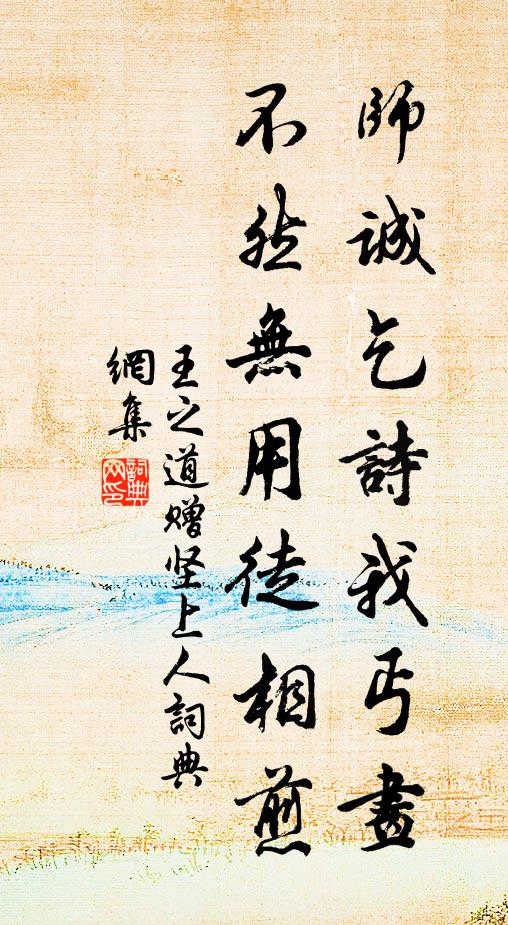 師誠乞詩我丐畫
不然無用徒相煎
王之道赠坚上人詞典
網集
詞典
网印